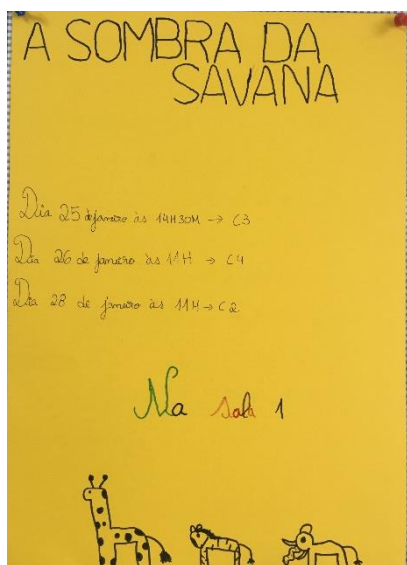 A SOMBRA DA
SAVANA
Dia 25 de janeiro às 14H30M → C3
Dia 26 de janeiro às 11H → C4
Dia 28 de janeiro às 11H → C2
Na sala 1